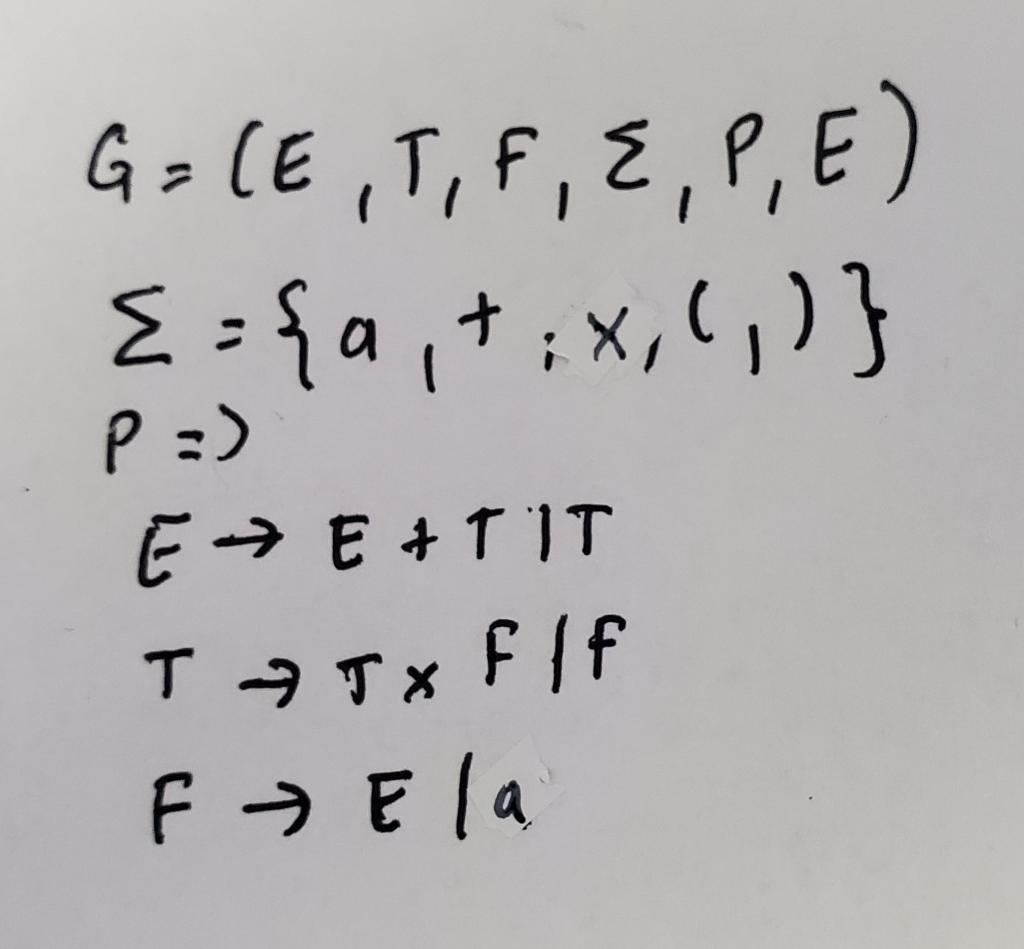 G = (E, T, F, Σ, P, E)
Σ = {a, +, x, (, )}
P =>
E → E + T | T
T → T x F | F
F → E | a